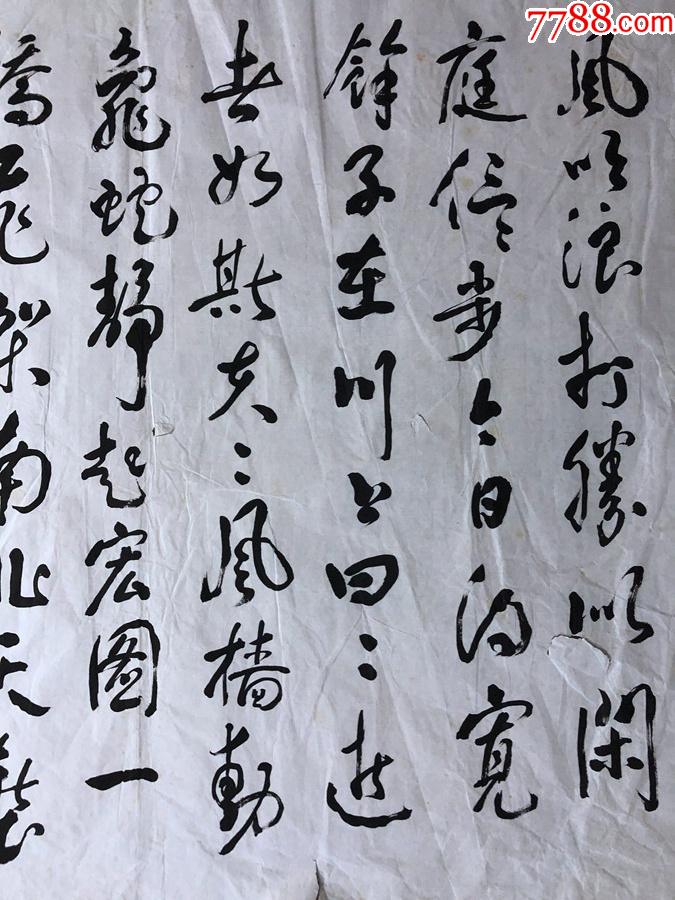 7788.com
風吹浪打勝似閑
庭信步今日得寬
餘子在川上曰：逝
者如斯夫：風檣動
龜蛇靜起宏图一
橋飛架南北天塹